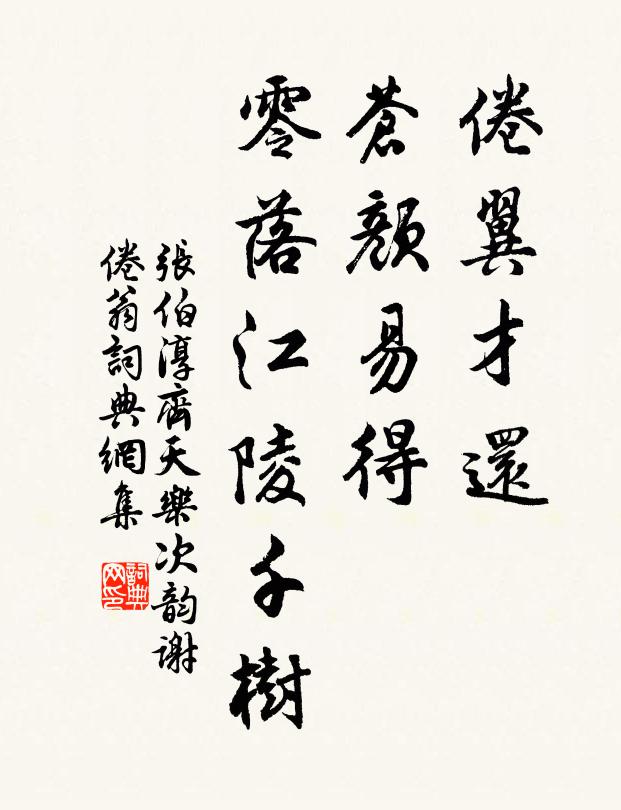 倦翼才還
蒼顏易得
零落江陵千樹
張伯淳齊天樂次韵謝
倦翁詞典網集
詞典网印